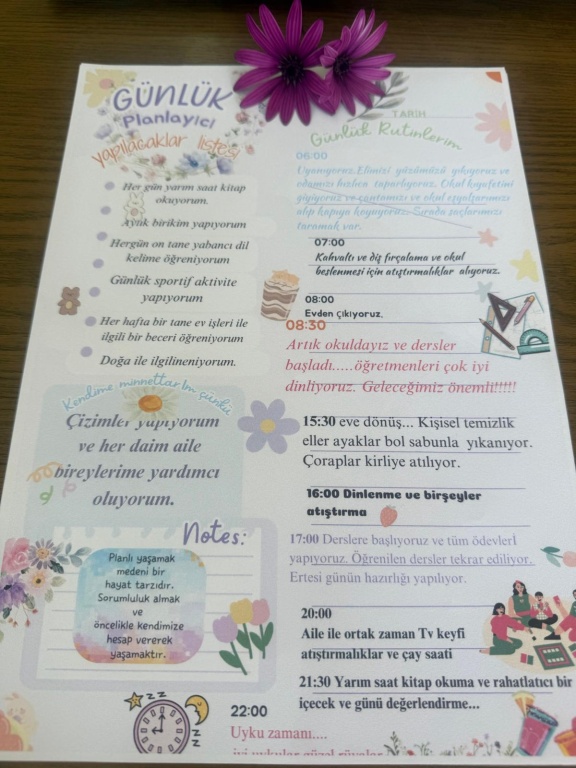 GÜNLÜK
Planlayıcı
yapılacaklar listesi
Her gün yarım saat kitap
okuyorum.
Aylık birikim yapıyorum
Hergün on tane yabancı dil
kelime öğreniyorum
Günlük sportif aktivite
yapıyorum
Her hafta bir tane ev işleri ile
ilgili bir beceri öğreniyorum
Doğa ile ilgilineniyorum.
Kendime minnettar Im çünkü
Çizimler yapıyorum
ve her daim aile
bireylerime yardımcı
oluyorum.
Notes:
Planlı yaşamak
medeni bir
hayat tarzıdır.
Sorumluluk almak
ve
öncelikle kendimize
hesap vererek
yaşamaktır.
TARİH
Günlük Rutinlerim
06:00
Uyanıyoruz.Elimizi yüzümüzü yıkıyoruz ve
odamızı hızlıca toparlıyoruz. Okul kıyafetini
giyiyoruz ve çantamızı ve okul eşyalarımızı
alıp kapıya koyuyoruz. Sırada saçlarımızı
taramak var.
07:00
Kahvaltı ve diş fırçalama ve okul
beslenmesi için atıştırmalıklar alıyoruz.
08:00
Evden çıkıyoruz.
08:30
Artık okuldayız ve dersler
başladı.....öğretmenleri çok iyi
dinliyoruz. Geleceğimiz önemli!!!!!
15:30 eve dönüş... Kişisel temizlik
eller ayaklar bol sabunla yıkanıyor.
Çoraplar kirliye atılıyor.
16:00 Dinlenme ve birşeyler
atıştırma
17:00 Derslere başlıyoruz ve tüm ödevlerI
yapıyoruz. Öğrenilen dersler tekrar ediliyor.
Ertesi günün hazırlığı yapılıyor.
20:00
Aile ile ortak zaman Tv keyfi
atıştırmalıklar ve çay saati
21:30 Yarım saat kitap okuma ve rahatlatıcı bir
içecek ve günü değerlendirme...
22:00
Uyku zamanı....
iyi uykular güzel rüyalar